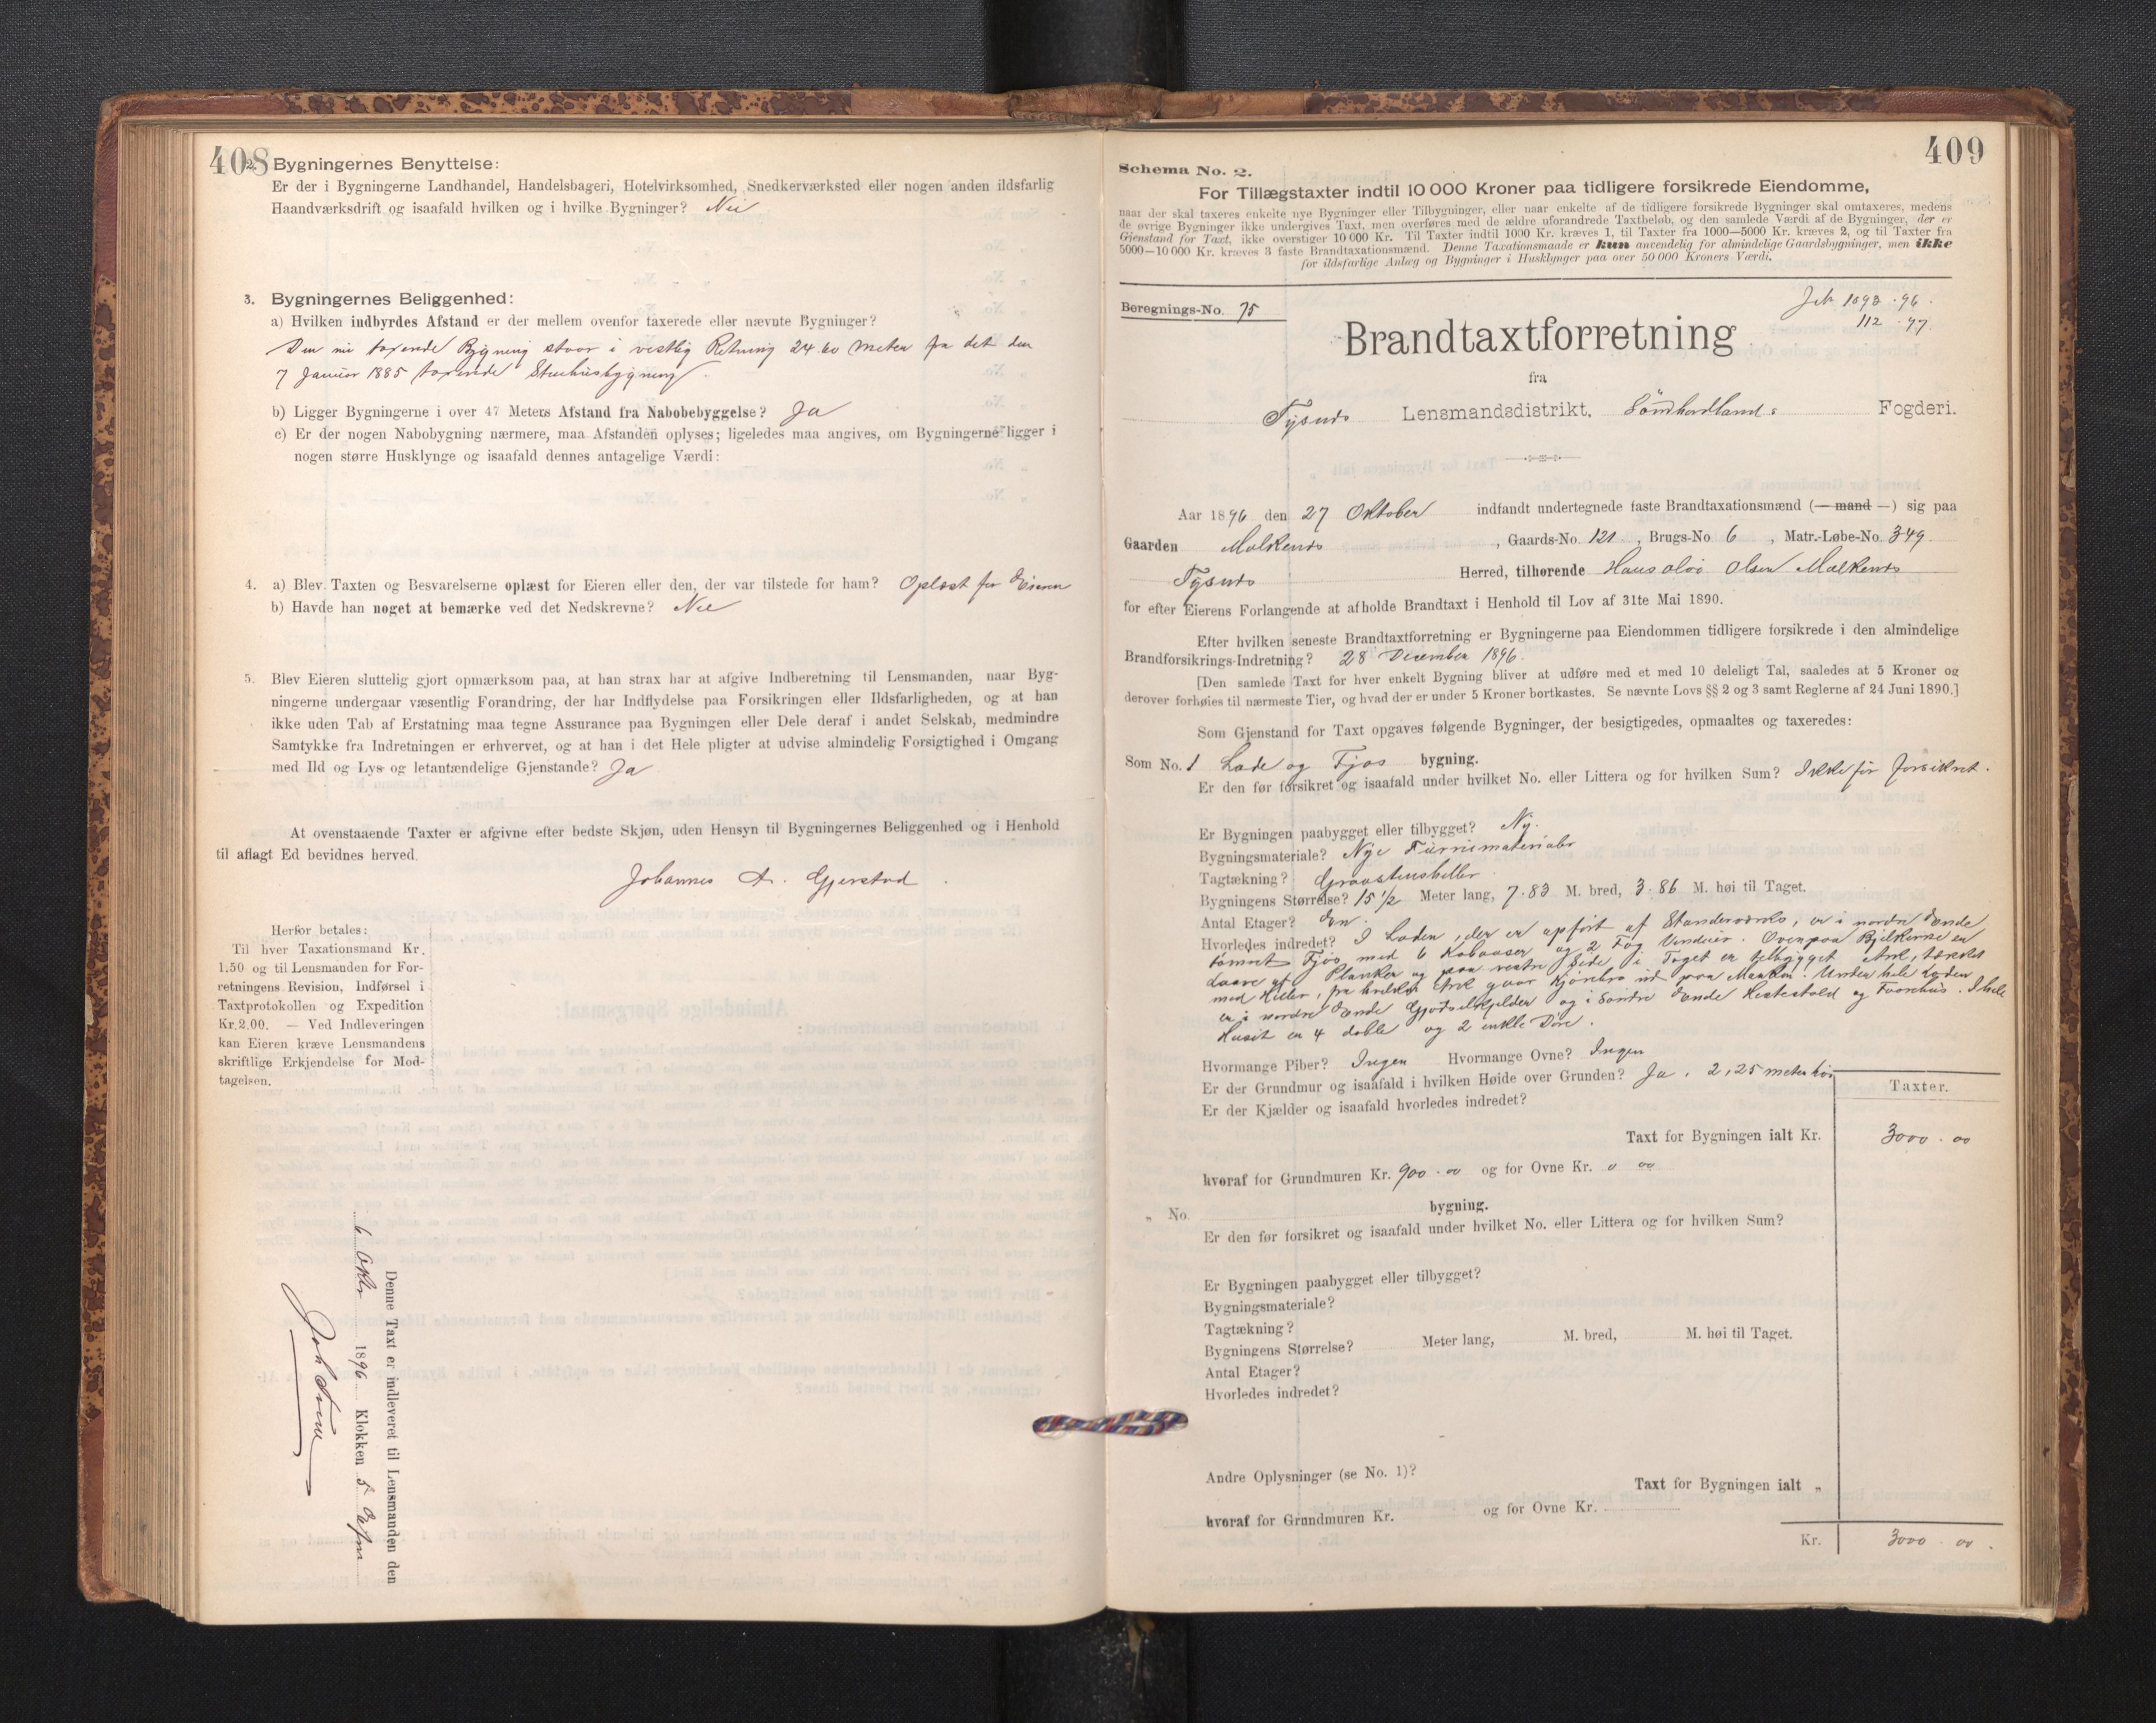 408
2. Bygningernes Benyttelse:
Er der i Bygningerne Landhandel, Handelsbageri, Hotelvirksomhed, Snedkerværksted eller nogen anden ildsfarlig
Haandværksdrift og isaafald hvilken og i hvilke Bygninger? Nei
3. Bygningernes Beliggenhed:
a) Hvilken indbyrdes Afstand er der mellem ovenfor taxerede eller nævnte Bygninger?
Den nu taxerede Bygning staar i vestlig Retning 24.60 Meter fra det den
7 Januar 1885 taxerede Stuehusbygning.
b) Ligger Bygningerne i over 47 Meters Afstand fra Nabobebyggelse? Ja
c) Er der nogen Nabobygning nærmere, maa Afstanden oplyses; ligeledes maa angives, om Bygningerne ligger i
nogen større Husklynge og isaafald dennes antagelige Værdi:
4. a) Blev Taxten og Besvarelserne oplæst for Eieren eller den, der var tilstede for ham? Oplæst for Eieren
b) Havde han noget at bemærke ved det Nedskrevne? Nei
5. Blev Eieren sluttelig gjort opmærksom paa, at han strax har at afgive Indberetning til Lensmanden, naar Byg-
ningerne undergaar væsentlig Forandring, der har Indflydelse paa Forsikringen eller Ildsfarligheden, og at han
ikke uden Tab af Erstatning maa tegne Assurance paa Bygningen eller Dele deraf i andet Selskab, medmindre
Samtykke fra Indretningen er erhvervet, og at han i det Hele pligter at udvise almindelig Forsigtighed i Omgang
med Ild og Lys og letantændelige Gjenstande? Ja
At ovenstaaende Taxter er afgivne efter bedste Skjøn, uden Hensyn til Bygningernes Beliggenhed og i Henhold
til aflagt Ed bevidnes herved.
Johannes A. Gjerstad.
Herfor betales:
Til hver Taxationsmand Kr.
1.50 og til Lensmanden for For-
retningens Revision, Indførsel i
Taxtprotokollen og Expedition
Kr. 2.00. — Ved Indleveringen
kan Eieren kræve Lensmandens
skriftlige Erkjendelse for Mod-
tagelsen.
Denne Taxt er indleveret til Lensmanden den
6 Oktr 1896 Klokken 5
409
Schema No. 2.
For Tillægstaxter indtil 10 000 Kroner paa tidligere forsikrede Eiendomme,
naar der skal taxeres enkelte nye Bygninger eller Tilbygninger, eller naar enkelte af de tidligere forsikrede Bygninger skal omtaxeres, medens
de øvrige Bygninger ikke undergives Taxt, men overføres med de ældre uforandrede Taxtbeløb, og den samlede Værdi af de Bygninger, der er
Gjenstand for Taxt, ikke overstiger 10 000 Kr. Til Taxter indtil 1000 Kr. kræves 1, til Taxter fra 1000—5000 Kr. kræves 2, og til Taxter fra
5000—10 000 Kr. kræves 3 faste Brandtaxationsmænd. Denne Taxationsmaade er kun anvendelig for almindelige Gaardsbygninger, men ikke
for ildsfarlige Anlæg og Bygninger i Husklynger paa over 50 000 Kroners Værdi.
Beregnings-No. 75
1898.96.
112.97.
Brandtaxtforretning
fra
Tysnes Lensmandsdistrikt, Søndhordlands Fogderi.
Aar 1896 den 27 Oktober indfandt undertegnede faste Brandtaxationsmænd (— mand —) sig paa
Gaarden Malkenes, Gaards-No. 121, Brugs-No 6, Matr.-Løbe-No. 349
Tysnes Herred, tilhørende Hans Olai Olsen Malkenes
for efter Eierens Forlangende at afholde Brandtaxt i Henhold til Lov af 31te Mai 1890.
Efter hvilken seneste Brandtaxtforretning er Bygningerne paa Eiendommen tidligere forsikrede i den almindelige
Brandforsikrings-Indretning? 28 December 1896.
[Den samlede Taxt for hver enkelt Bygning bliver at udføre med et med 10 deleligt Tal, saaledes at 5 Kroner og
derover forhøies til nærmeste Tier, og hvad der er under 5 Kroner bortkastes. Se nævnte Lovs §§ 2 og 3 samt Reglerne af 24 Juni 1890.]
Som Gjenstand for Taxt opgaves følgende Bygninger, der besigtigedes, opmaaltes og taxeredes:
Som No. 1 Lade og Fjøs bygning.
Er den før forsikret og isaafald under hvilket No. eller Littera og for hvilken Sum? Ikke før forsikret.
Er Bygningen paabygget eller tilbygget? Ny.
Bygningsmateriale? Nye Furrumaterialer
Tagtækning? Graastenheller
Bygningens Størrelse? 15 1/2 Meter lang, 7.83 M. bred, 3.86 M. høi til Taget.
Antal Etager? En.
Hvorledes indredet? I Laden, der er opført af Standerværk, er i nordre Ende
tømret Fjøs med 6 Kobaaser og 2 Fag Vinduer. Ovenpaa Bjelkerne en
Laave af Planker og paa vestre Side i Taget er tilbygget Ark, tækket
med Heller, fra hvilken Ark gaar Kjørebro ud paa Marken. Under hele Laden
er i nordre Ende Gjødselkjelder og i Søndre Ende Hestestald og Faarehus. I hele
Huset er 4 doble og 2 enkle Døre.
Hvormange Piber? Ingen Hvormange Ovne? Ingen
Er der Grundmur og isaafald i hvilken Høide over Grunden? Ja, 2,25 meter høi
Er der Kjælder og isaafald hvorledes indredet?
Taxter.
Taxt for Bygningen ialt Kr. 3000.00
hvoraf for Grundmuren Kr. 900.00 og for Ovne Kr. 0 00
„ No. bygning.
Er den før forsikret og isaafald under hvilket No. eller Littera og for hvilken Sum?
Er Bygningen paabygget eller tilbygget?
Bygningsmateriale?
Tagtækning?
Bygningens Størrelse? Meter lang, M. bred, M. høi til Taget.
Antal Etager?
Hvorledes indredet?
Andre Oplysninger (se No. 1)?
Taxt for Bygningen ialt „
hvoraf for Grundmuren Kr. og for Ovne Kr.
Kr. 3000.00.